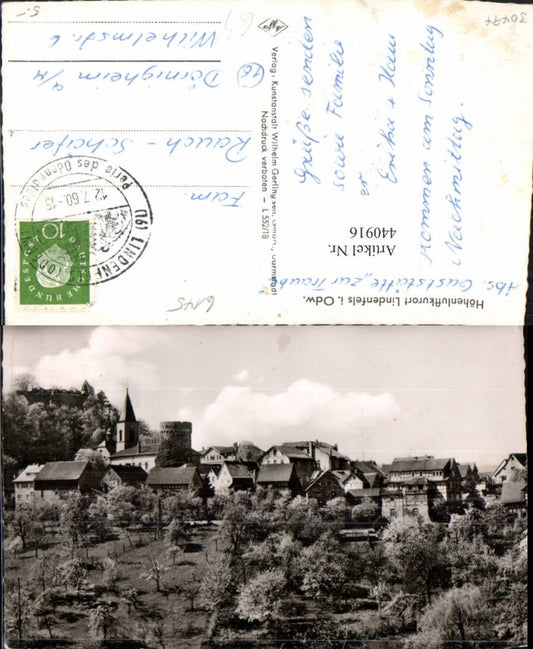 Grüße senden
sowie Familie
Erika + Hans
kommen am Sonntag
Nachmittag.
Abs. Gaststätte „zur Traube"
Höhenluftkurort Lindenfels i. Odw.
Artikel Nr.
440916
Verlag: Kunstanstalt Wilhelm Gerling sen.
Darmstadt
Nachdruck verboten – L 552/18
Agfa
Fam.
Rauch - Schäfer
(16) Dörnigheim a/M
Wilhelmstr. 6
(16) LINDENFELS
Perle des Odenwaldes
12.7.60.-15
10
DEUTSCHE
BUNDESPOST
6145
30494
5.-